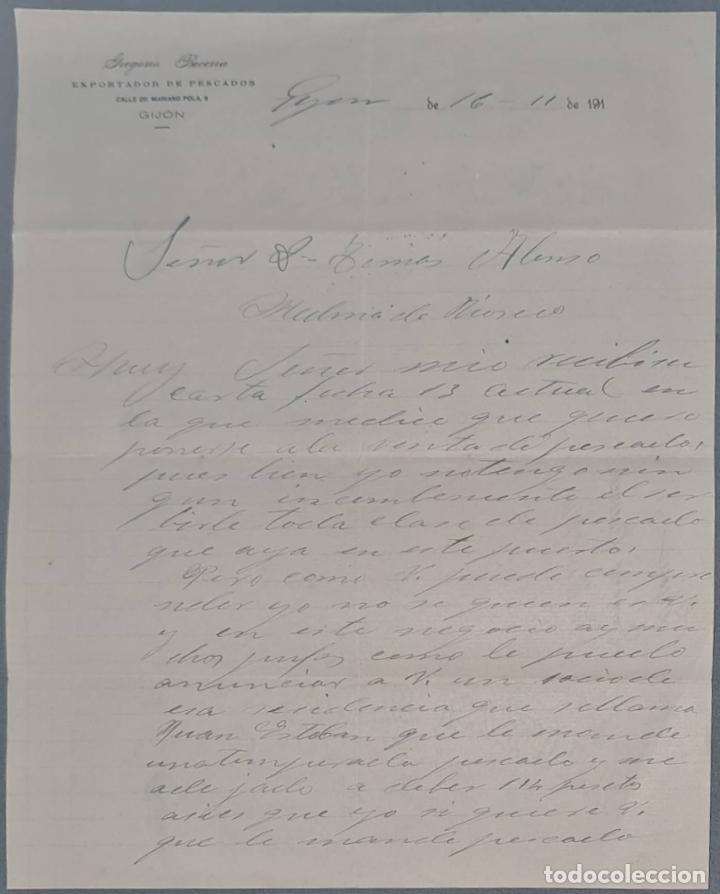 Gregorio Becerra
EXPORTADOR DE PESCADOS
CALLE DE MARIANO POLA, 9
GIJÓN
Gijon de 16 - 11 de 191
Señor D- Alonso
Medina de Rioseco
Muy Señor mio recibi su
carta fecha 13 actual en
la que me dice que quiere
ponerse a la venta de pescado,
pues bien yo no tengo nin
gun incombeniente el ser
birle toda clase de pescado
que aya en este puerto.
Pero como V. puede compre
nder yo no se quien es V.
y en este negocio ay mu
chos como le puedo
anunciar a V. un socio de
esa residencia que se llama
Juan Esteban que le mande
una temporada pescado y me
a dejado a deber 114 pesetas
asies que yo si quiere V.
que le mande pescado
todocoleccion